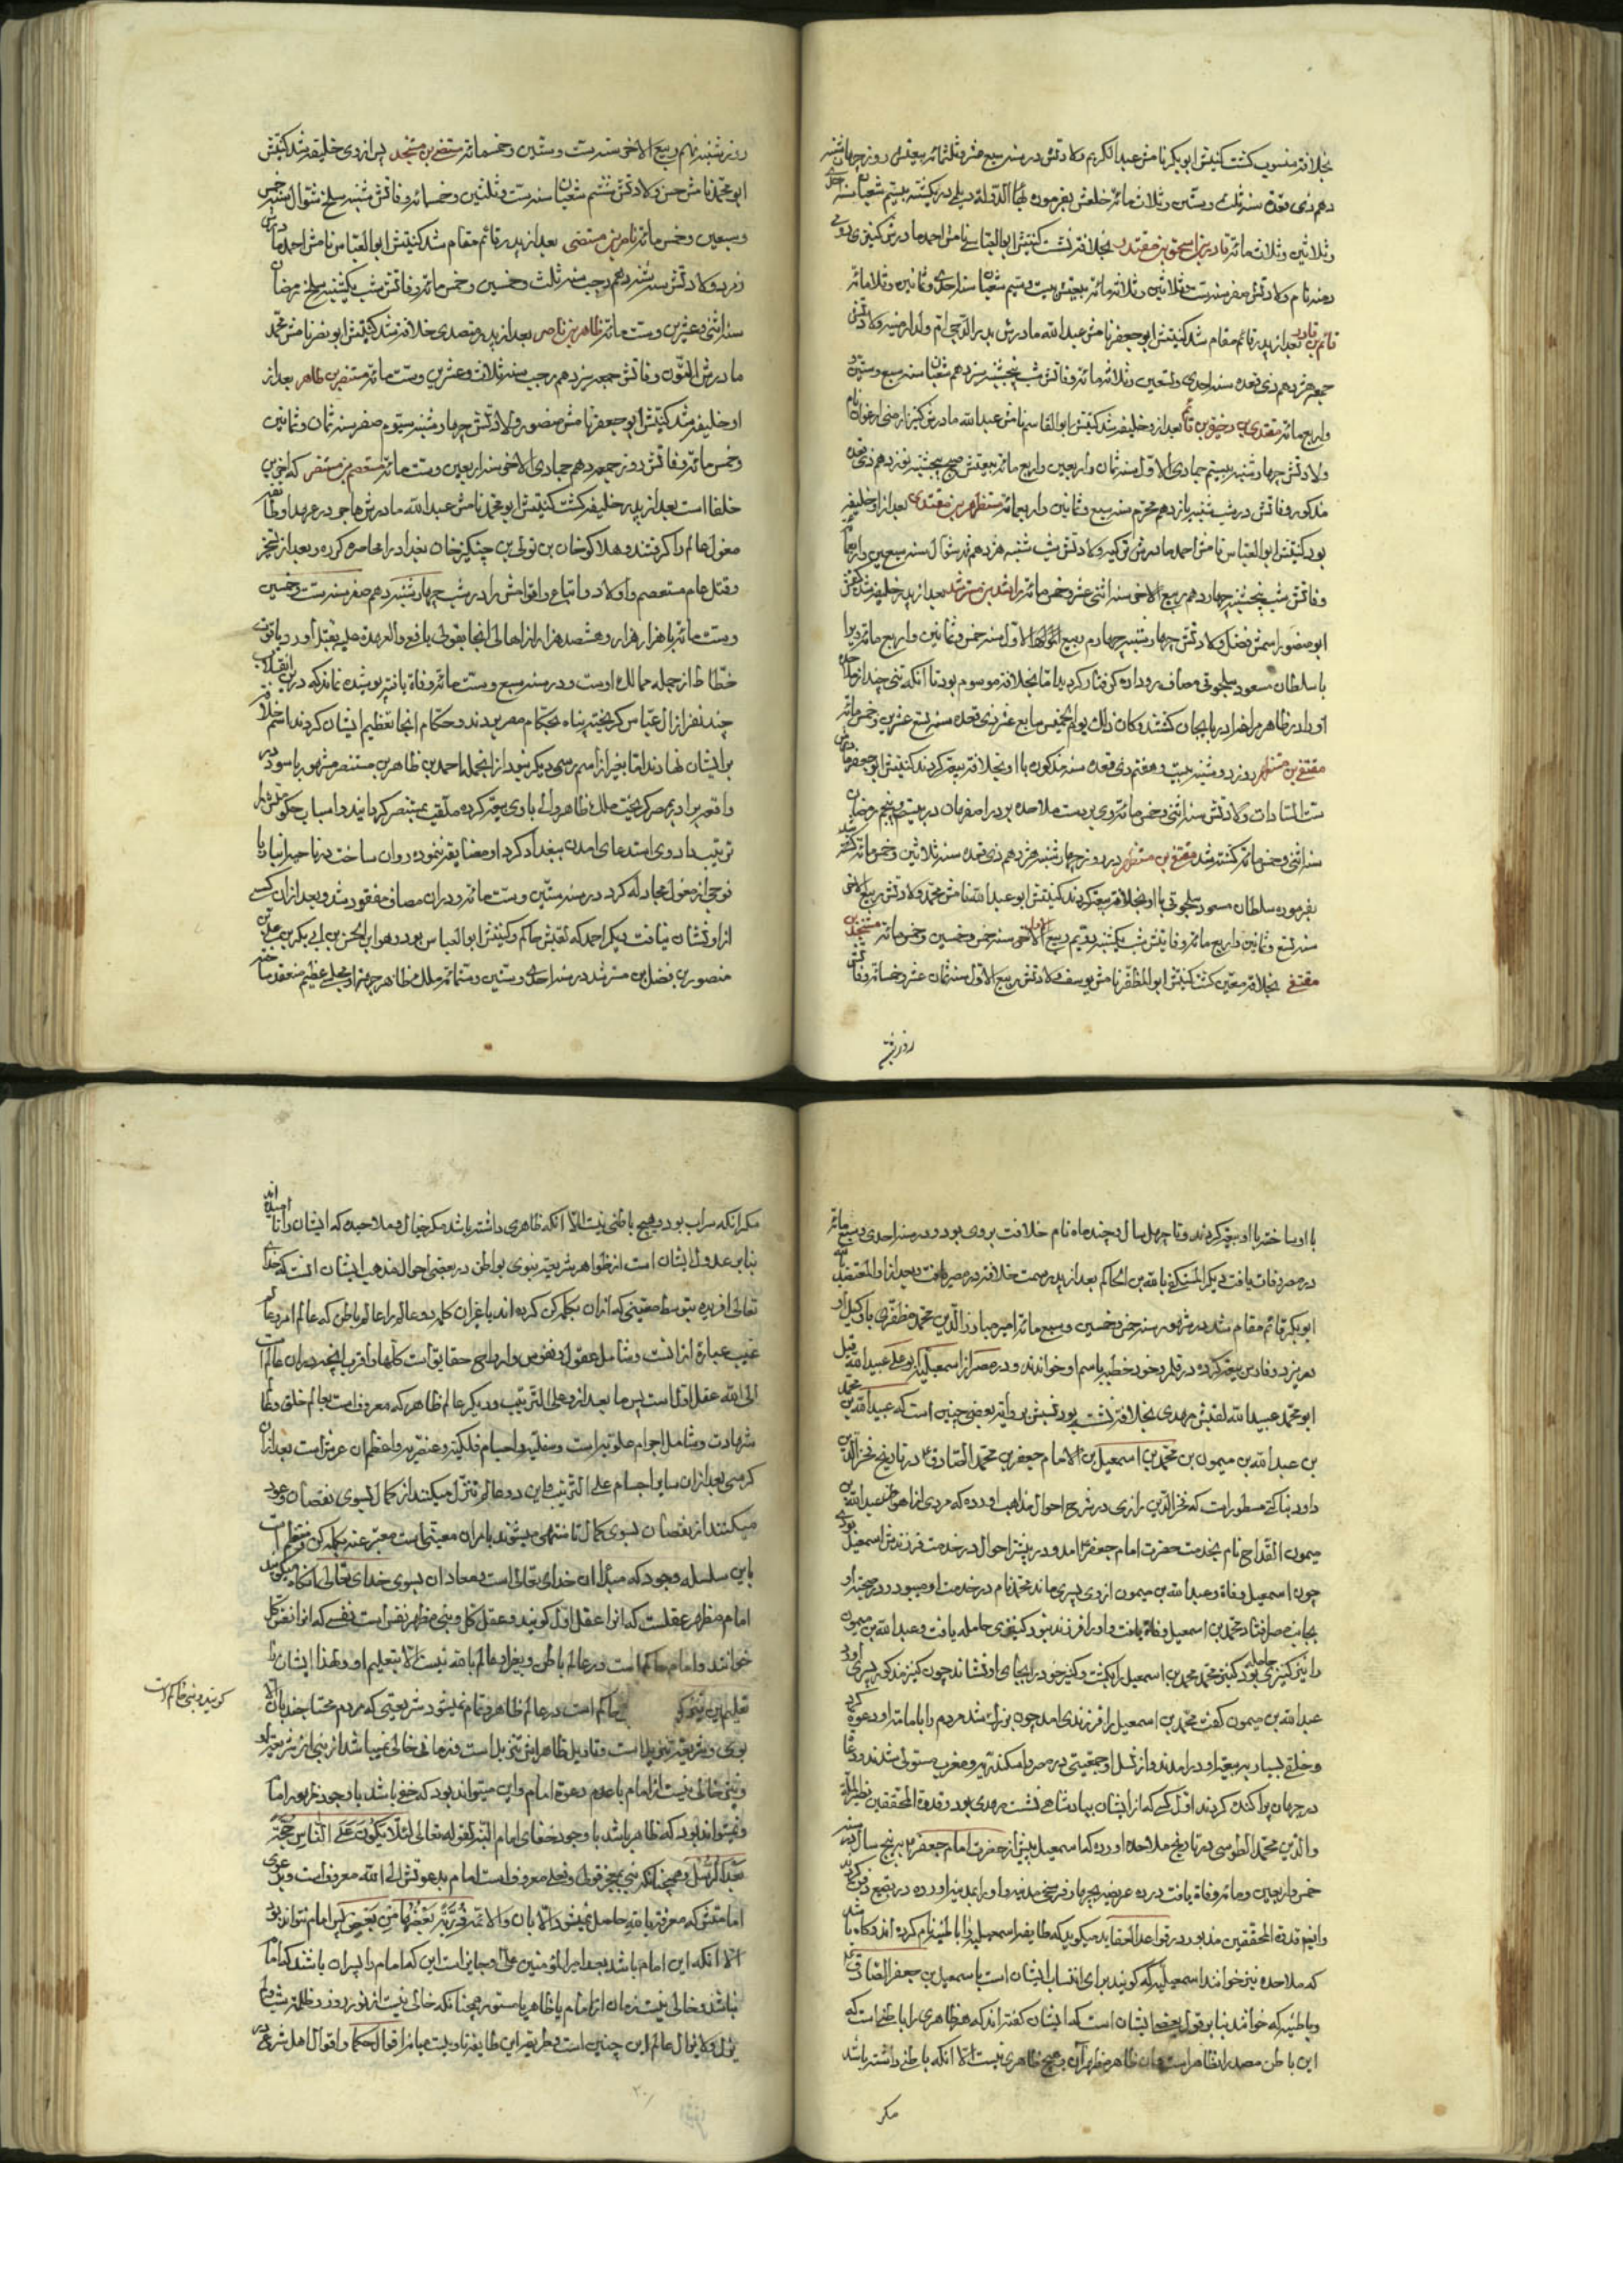 بخلافة منسوب كشت كنيتش ابو بكر نامش عبد الكريم ولادتش در سنه سبع عشر وثلثمائه بيعتش روز چهارشنبه
دهم ذى قعده سنه ثلث وستين وثلاث مائه خلعش بفرموده بهاء الدوله ديلمى در يكشنبه بيستم شعبان سنه احدى
وثلاثين وثلاث مائه قادر بن اسحق بن مقتدر بخلافة نشست كنيتش ابو العباس نامش احمد مادرش كنيزى رومى
دمنه نام ولادتش صفر سنه ست وثلاثين وثلاثمائه بيعتش بيست ودويم شعبان سنه احدى وثمانين وثلاثمائه
قائم بن قادر بعد از پدر قائم مقام شد كنيتش ابو جعفر نامش عبد الله مادرش بدر الدجى ام ولد ارمنيه ولادتش
جمعه هژدهم ذى قعده سنه احدى وتسعين وثلاثمائه وفاتش شب پنجشنبه سيزدهم شعبان سنه سبع وستين
واربع مائه مقتدى بن ذخيرة بن قائم بعد ازو خليفه شد كنيتش ابو القاسم نامش عبد الله مادرش كنيز ارمنى ارغوان نام
ولادتش چهارشنبه بيستم جمادى الاول سنه ثمان واربعين واربع مائه بيعتش صبح پنجشنبه نوزدهم ذى قعده
مذكور وفاتش در شب شنبه پانزدهم محرم سنه سبع وثمانين واربعمائه مستظهر بن مقتدى بعد از او خليفه
بود كنيتش ابو العباس نامش احمد مادرش تركيه ولادتش شب شنبه هژدهم شوال سنه سبعين واربعمائه
وفاتش شب پنجشنبه چهاردهم ربيع الاخر سنه اثنى عشر وخمس مائه راشد بن مسترشد بعد از پدر خليفه شد كنيتش
ابو منصور اسمش فضل ولادتش چهارشنبه چهاردم ربيع الاول سنه خمس وثمانين واربع مائه ويرا
با سلطان مسعود سلجوقى مصاف روداده گرفتار گرديد اما بخلافة موسوم بود تا آنكه تنى چند از ملاحده
او را در ظاهر مراغه اذربايجان كشتند وكان ذلك يوم الخميس سابع عشر ذى قعده سنه تسع عشرين وخمس مائه
مقتفى بن مستظهر روز دوشنبه بيست وهفتم ذى قعده سنه مذكور با او بخلافة بيعة كردند كنيتش ابو جعفر مادرش
ست السادات ولادتش سنه اثنى وخمس مائه وى بر دست ملاحده بر در اصفهان در بيست وپنجم رمضان
سنه اثنى وخمس مائه كشته شد مقتفى بن مستظهر در روز چهارشنبه هژدهم ذى قعده سنه ثلاثين وخمس مائه
بفرموده سلطان مسعود سلجوقى با او بخلافة بيعة كردند كنيتش ابو عبد الله نامش محمد ولادتش ربيع الاخر
سنه تسع وثمانين واربع مائه وفاتش شب يكشنبه دويم ربيع الاول سنه خمس وخمسين وخمس مائه مستنجد بن
مقتفى بخلافة معين كشت كنيتش ابو المظفر نامش يوسف ولادتش ربيع الاول سنه ثمان عشر وخمسمائه وفاتش
روز شنبه
روز شنبه نهم ربيع الاخر سنه ست وستين وخمسمائه مستضئ بن مستنجد پس از وى خليفه شد كنيتش
ابو محمد نامش حسن ولادتش ششم شعبان سنه ست وثلثين وخمسمائه وفاتش شنبه سلخ شوال سنه خمس
وسبعين وخمس مائه ناصر بن مستضى بعد از پدر قائم مقام شد كنيتش ابو العباس نامش احمد مادرش
زمرد ولادتش شنبه دهم رجب سنه ثلث وخمسين وخمس مائه وفاتش شب يكشنبه سلخ رمضان
سنه اثنى وعشرين وست مائه ظاهر بن ناصر بعد از پدر متصدى خلافة شد كنيتش ابو نصر نامش محمد
مادرش وفاتش جمعه سيزدهم رجب سنه ثلاث وعشرين وست مائه مستنصر بن ظاهر بعد از
او خليفه شد كنيتش ابو جعفر نامش منصور ولادتش چهارشنبه سيوم صفر سنه ثمان وثمانين
وخمس مائه وفاتش روز جمعه دهم جمادى الاخر سنه اربعين وست مائه مستعصم بن مستنصر كه اخرين
خلفا است بعد از پدر خليفه كشت كنيتش ابو محمد نامش عبد الله مادرش هاجر در عهد او طائفه
مغول عالم را گرفتند وهلاكو خان بن تولى بن چنكيز خان بغداد را محاصره كرده وبعد از تسخير
وقتل عام مستعصم واولاد واتباع واقوامش را در شب چهارشنبه دهم صفر سنه ست وخمسين
وست مائه با هزار هزار وهشتصد هزار از اهالى انجا بقول يافعى والعهدة عليه بقتل آورد وياقوت
خطاط از جمله مماليك اوست ودر سنه سبع وست مائه وفاة يافته پوشيده نماند كه در ين انقلاب
چند نفر از آل عباس گريخته پناه بحكام مصر بردند وحكام انجا تعظيم ايشان كردند اسم خلافة
بر ايشان نهادند اما بغير از اسم رسمى ديگر نبود از انجمله احمد بن ظاهر بن مستنصر مشهور باسود در
در مصر ملك ظاهر والى با وى بيعة كرده ملقب بمستنصر گردانيد واسباب حكومتش را
ترتيب داد وى استدعاى امدن ببغداد كرد او مضايقه ننموده روان ساخت در ناحيه انبار با
فوجى از مغول مجادله كرد در سنه ستين وست مائه ودر ان مصاف مفقود شد وبعد از ان كسى
از او نشان نيافت ديگر احمد كه لقبش حاكم وكنيتش ابو العباس بود وهو ابن الحسن بن ابى بكر بن على بن
منصور بن فضل بن مسترشد در سنه احدى وستين وستمائه ملك ظاهر جهة او مجلس عظيم منعقد ساخته
با او ساخته با او بيعة كردند وتا چهل سال وچند ماه نام خلافت بر وى بود ودر سنه احدى وسبع مائه
در مصر وفات يافت ديگر المستكفى بالله بن الحاكم بعد از پدر سمت خلافة در مصر يافت وبعد از او المعتضد بالله
ابو بكر قائم مقام شد در شهور سنه خمس وخمسين وسبع مائه امير مبارز الدين محمد مظفرى با وكيل او
در يزد وفارس بيعة كرده در قلمرو خود خطبه باسم او خواندند ودر مصر از اسمعيليه ابو على عبيد الله وقيل
ابو محمد عبيد الله لقبش مهدى بخلافة نشسته بود نسبش بروايت بعضى چنين است كه عبيد الله بن محمد
بن عبد الله بن ميمون بن محمد بن اسمعيل بن الامام جعفر بن محمد الصادق ع در تاريخ فخر الدين
داود بناكتى مسطور است كه فخر الدين رازى در شرح احوال مذاهب آورده كه مردى از اهواز عبد الله بن
ميمون القداح نام بخدمت حضرت امام جعفر ع امد ودر بيشتر احوال در خدمت فرزندش اسمعيل بودى
چون اسمعيل وفاة وعبد الله بن ميمون از وى پسرى ماند محمد نام در خدمت او ميبود ودر صحبت او
بجانب مصر افتاد محمد بن اسمعيل وفاة يافت واو را فرزند نبود كنيزى حامله يافت وعبد الله بن ميمون
را نيز كنيزى حامله بود كنيز محمد بن اسمعيل را بكشت وكنيز خود را بجاى او نشاند چون كنيز مذكور پسرى آورد
عبد الله بن ميمون گفت محمد بن اسمعيل را فرزندى امد چون بزرك شد مردم را بامامت او دعوة كرد
وخلقى بسيار ببيعة او درامدند واز نسل او جمعيتى در مصر واسكندريه ومغرب مستولى شدند ودعاة
در جهان پراكنده كردند اول كسى كه از ايشان بپادشاهى نشست مهدى بود وقدوة المحققين نصير الملة
والدين محمد الطوسى در تاريخ ملاحده آورده كه اسمعيل پيش از حضرت امام جعفر ع به پنج سال در سنه
خمس واربعين ومائه وفاة يافت در ده عريضه بچهار فرسخى مدينه واو را بمدينه آورده در بقيع دفن كردند
وايضا قدوة المحققين مذبور در قواعد العقايد ميگويد كه طايفه اسمعيليه را باطنيه نام كرده اند وگاه باشد
كه ملاحده نيز خوانند اسمعيليه كه گويند براى انتساب ايشان است باسمعيل بن جعفر الصادق ع
وباطنيه كه خوانند بنا بر قول بعض ايشان است كه ايشان گفته اند كه هر ظاهرى را باطنى است كه
اين باطن مصدر ان ظاهر است وان ظاهر مظهر آن وهيچ ظاهرى نيست الا آنكه باطنى داشته باشد
مكر
مكر آنكه سراب بود وهيچ باطنى نيست الا آنكه ظاهرى داشته باشد مكر خيال وملاحده كه ايشان را ناميده اند
بنابر عدول ايشان است از ظواهر شريعة نبوى ببواطن در بعضى احوال مذهب ايشان انست كه خداى
تعالى افريده بتوسط معنيى كه از ان بكلمه كن كرده اند يا غير ان كلمه دو عالم را عالم باطن كه عالم امر وعالم
غيب عبارة از انست وشامل عقول ونفوس وارواح حقايق است كلها واقرب انچه در ان عالم است
الى الله عقل اول است پس ما بعد از وعلى الترتيب وديگر عالم ظاهر كه معروف است بعالم خلق وعالم
شهادت وشامل اجرام علويه است وسفليه واجسام فلكيه وعنصريه واعظم ان عرش است بعد از ان
كرسى بعد از ان ساير اجسام على الترتيب واين دو عالم تنزل ميكنند از كمال بسوى نقصان وعود
ميكنند از نقصان بسوى كمال تا منتهى ميشوند بامر ان معينها است معبر عنه بكلمه كن ومنتظم است
باين سلسله وجود كه مبدا ان خداى تعالى است ومعاد ان بسوى خداى تعالى انگاه ميگويند
امام مظهر عقلست كه انرا عقل اول گويند وعقل كل ونبى مظهر نفس است نفسى كه انرا نفس كل
خوانند وامام حاكم است در عالم باطن وغير او عالم بالله نيست الا بتعليم او ولهذا ايشان را
تعليميه حاكم است در عالم ظاهر وتمام نميشود شريعتى كه مردم محتاجند بان الا
گويند ونبى حاكم است
بوى وشريعة را تنزيل است وتاويل ظاهرش تنزيل است وزمانى خالى نميباشد از نبى از شريعة او
ونيز خالى نيست از امام يا عدم دعوة امام واين ميتواند بود كه خفى باشد با وجود ظهور امام
ونميتواند بود كه ظاهر باشد با وجود خفاى امام البته لقوله تعالى لئلا يكون على الناس حجة
بعد الرسل وهمچنانكه نبى بمعجز قولى وفعلى معروف است امام بدعوتش الى الله معروف است وبدعوى
امامتش كه معرفة بالله حاصل نميشود الا بان والائمه ذرية بعضها من بعض پس امام نتواند بود
الا آنكه ابن امام باشد بعد امير المؤمنين على ع وجايز است اين كه امام را پسران باشند كه امام
نباشد وخالى نيست زمان از امام يا ظاهر يا مستور همچنانكه خالى نيست از نور روز وظلمت شب وام
يزل ولا يزال عالم اين چنين است وطريقه اين طايفه تاويليست ميانه اقوال حكما واقوال اهل شرع در